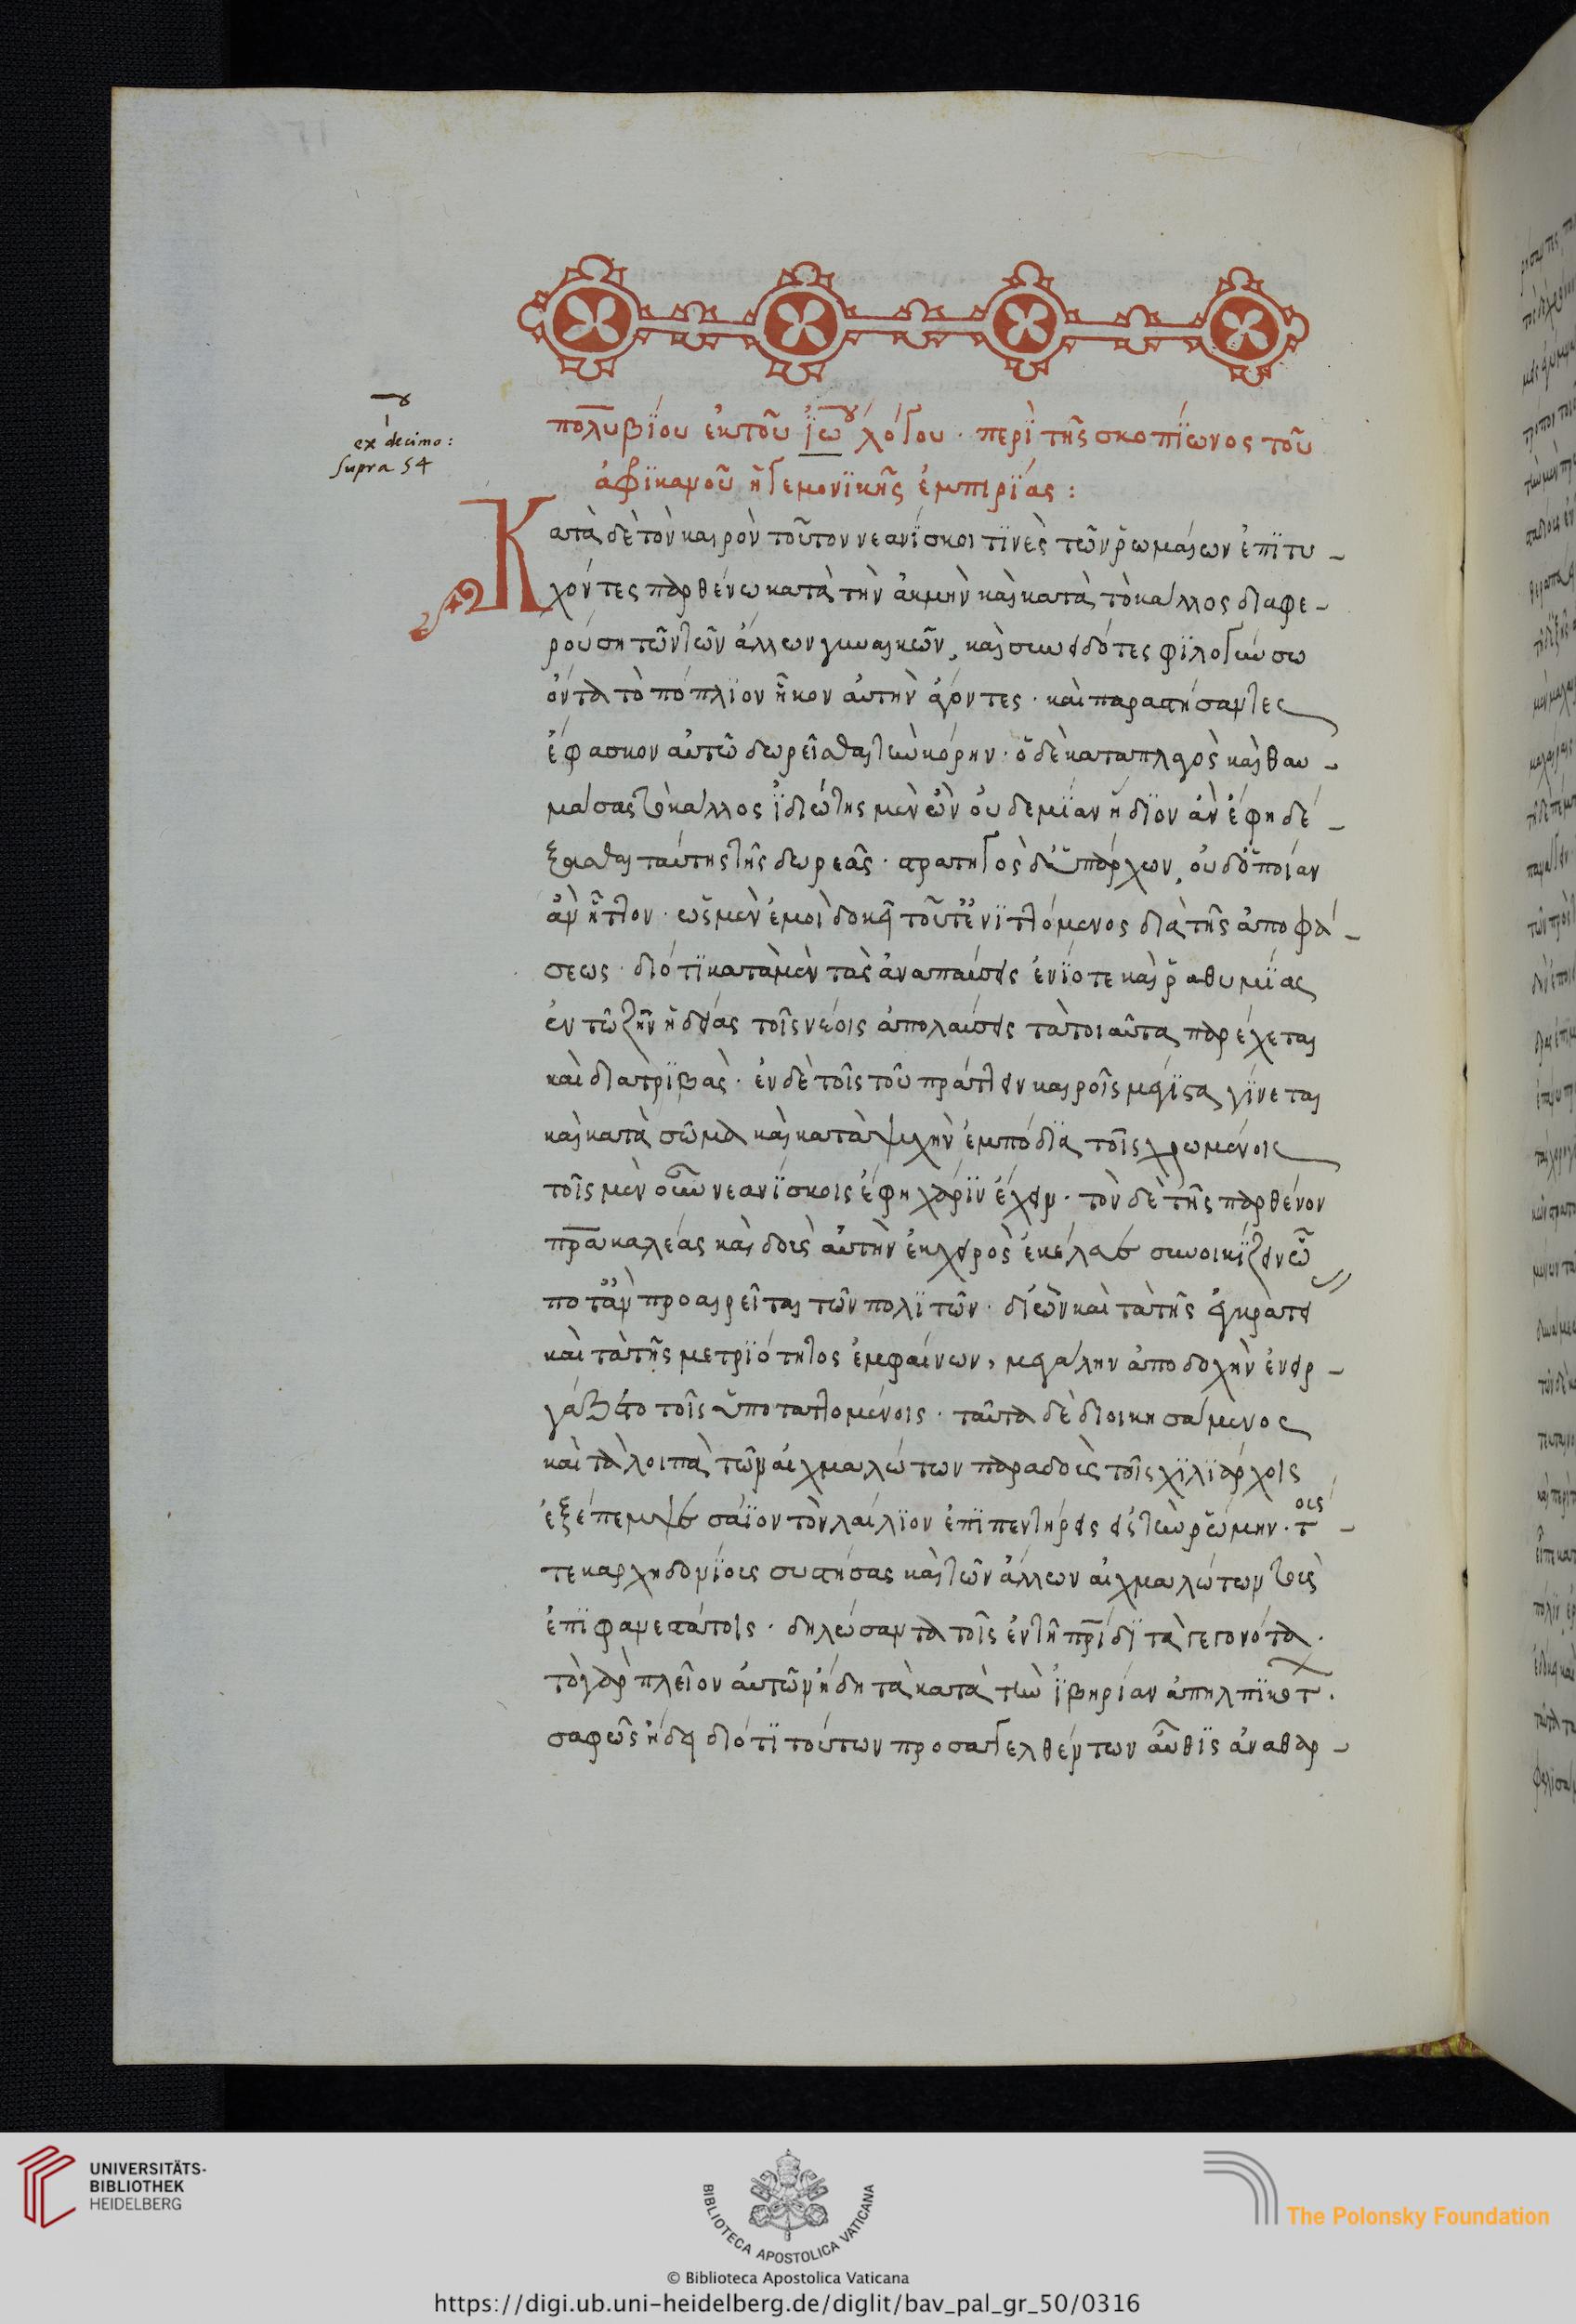 ex decimo:
supra 54
πολυβίου ἐκ τοῦ ϊω λόγου · περὶ τῆς σκοπίωνος τοῦ
ἀφϊκανοῦ ἡγεμονϊκῆς ἐμπιρϊας :
Κατὰ δὲ τὸν καιρὸν τοῦτον νεανίσκοι τϊνὲς τῶν ῥωμαίων ἐπϊτυ-
χόντες παρθένω κατὰ τὴν ἀκμὴν καὶ κατὰ τὸ κάλλος διαφε-
ρούση τῶν άλλων γυναικῶν, καὶ συνειδότες φϊλογύνην
όντα τὸ πόπλϊον ἧκον αὐτὴν άγοντες · καὶ παραστήσαντες
έφασκον αὐτῶ δωρεῖσθαι τὴν κόρην · ὁ δὲ καταπλαγὸς καὶ θαυ-
μάσας τὸ κάλλος ϊδιώτης μὲν ὢν οὐδεμϊαν ἥδϊον ἂν έφη δέ-
ξασθαι ταύτης τῆς δωρεᾶς · στρατηγὸς δ᾽ ὑπάρχων, οὐδ᾽ ὁποίαν
ἂν ἧττον · ὡς μὲν ἐμοὶ δοκεῖ τοῦτ᾽ αἰνϊττόμενος διὰ τῆς ἀποφά-
σεως · διότϊ κατὰ μὲν τὰς ἀναπαύσεις ἐνϊοτε καὶ ῥαθυμϊας
ἐν τῶ ζῆν ἡδείας τοῖς νέοις ἀπολαύσεις τὰ τοιαῦτα παρέχεται
καὶ διατρϊβὰς · ἐν δὲ τοῖς τοῦ πράττειν καιροῖς μέγϊστα γϊνεται
καὶ κατὰ σῶμα καὶ κατὰ ψυχὴν ἐμπόδϊα τοῖς χρωμένοις
τοῖς μὲν οὖν νεανϊσκοις έφη χάρϊν έχειν · τὸν δὲ τῆς παρθένον
πρα καλέσας καὶ δοὺς αὐτὴν ἐκ χειρὸς ἐκέλευσε συνοικϊζειν ὧ
ποτ᾽ ἂν προαιρεῖται τῶν πολϊτῶν · δϊ ὧν καὶ τὰ τῆς ἐγκρατεί
καὶ τὰ τῆς μετρϊότητος ἐμφαίνων, μεγάλην ἀποδοχὴν ἐνειρ-
γάζετο τοῖς ὑποταττομένοις · ταῦτα δὲ διοικησάμενος
καὶ τὰ λοιπὰ τῶν αἰχμαλώτων παραδοὺς τοῖς χϊλϊάρχοις
ἐξέπεμψε γάϊον τὸν λαίλϊον ἐπϊ πεντήρεις εἰς τὴν ῥώμην · τοῖς
τε καρχηδονϊοις συστήσας καὶ τῶν άλλων αἰχμαλώτων τοὺς
ἐπϊφανεστάτοις · δηλώσαντα τοῖς ἐν τῆ πρίδϊ τὰ γεγονότα ·
τὸ γὰρ πλεῖον αὐτῶν ήδη τὰ κατὰ τὴν ϊβηρίαν ἀπηλπϊκότ ·
σαφῶς ήδει διότϊ τούτων προσαγγελθέντων αὖθϊς ἀναθαρ-
UNIVERSITÄTS-
BIBLIOTHEK
HEIDELBERG
BIBLIOTECA APOSTOLICA VATICANA
The Polonsky Foundation
© Biblioteca Apostolica Vaticana
https://digi.ub.uni-heidelberg.de/diglit/bav_pal_gr_50/0316